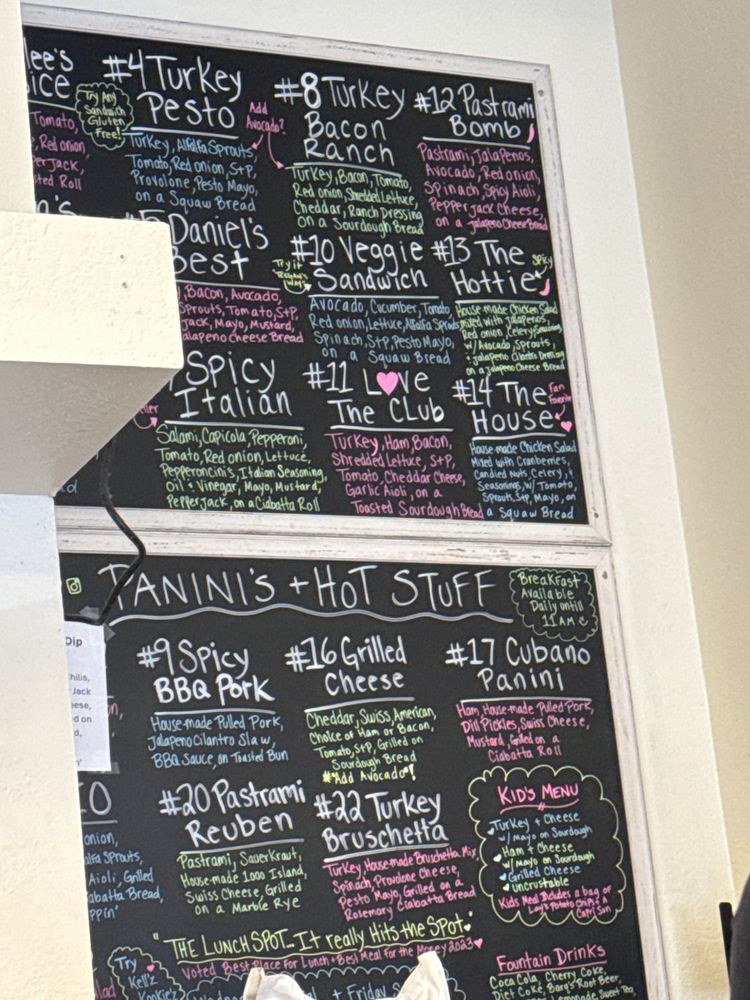 lee's
ice
Tomato,
Red onion,
erJack,
ted Roll
Try Any
Sandwich
Gluten
free!
#4 Turkey
Pesto
Add
Avocado?
Turkey, Alfalfa Sprouts,
Tomato, Red onion, S+P,
Provolone, Pesto Mayo,
on a Squaw Bread
#8 Turkey
Bacon
Ranch
Turkey, Bacon, Tomato,
Red onion, Shredded Lettuce,
Cheddar, Ranch Dressing
on a Sourdough Bread
#12 Pastrami
Bomb
Pastrami, Jalapenos,
Avocado, Red onion,
Spinach, Spicy Aioli,
Pepper jack Cheese,
on a Jalapeno Cheese Bread
Daniel's
Best
, Bacon, Avocado,
Sprouts, Tomato, S+P,
Jack, Mayo, Mustard,
alapeno Cheese Bread
Try it
#10 Veggie
Sandwich
Avocado, Cucumber, Tomato
Red onion, Lettuce, Alfalfa Sprouts
Spinach, S+P, Pesto Mayo,
on a Squaw Bread
#13 The
Hottie
Spicy
House made Chicken Salad
mixed with jalapenos,
Red onion, Celery, Seasoning
w/ Avocado, Sprouts,
jalapeno Cilantro Dressing
on a Jalapeno Cheese Bread
Spicy
Italian
Salami, Capicola, Pepperoni,
Tomato, Red onion, Lettuce,
Pepperoncini's, Italian Seasoning,
Oil & Vinegar, Mayo, Mustard,
Pepper jack, on a Ciabatta Roll
#11 L♥ve
The Club
Turkey, Ham, Bacon,
Shredded Lettuce, S+P,
Tomato, Cheddar Cheese,
Garlic Aioli, on a
Toasted Sourdough Bread
#14 The
House
Fan
Favorite
House-made Chicken Salad
Mixed with Cranberries,
Candied Nuts, Celery, &
Seasonings, w/ Tomato,
Sprouts, S+P, Mayo, on
a Squaw Bread
PANINI'S + HOT STUFF
Breakfast
Available
Daily until
11 AM
Dip
hilis,
Jack
ese,
d on
d,
#9 Spicy
BBQ Pork
House-made Pulled Pork,
Jalapeno Cilantro Slaw,
BBQ Sauce, on Toasted Bun
#16 Grilled
Cheese
Cheddar, Swiss, American,
Choice of Ham or Bacon,
Tomato, S+P, Grilled on
Sourdough Bread
*Add Avocado*!
#17 Cubano
Panini
Ham, House-made Pulled Pork,
Dill Pickles, Swiss Cheese,
Mustard, Grilled on a
Ciabatta Roll
onion,
alfa Sprouts,
Aioli, Grilled
abatta Bread,
ppin'
#20 Pastrami
Reuben
Pastrami, Sauerkraut,
House-made 1000 Island,
Swiss Cheese, Grilled
on a Marble Rye
#22 Turkey
Bruschetta
Turkey, House-made Bruschetta Mix,
Spinach, Provolone Cheese,
Pesto Mayo, Grilled on a
Rosemary Ciabatta Bread
KID'S MENU
Turkey + Cheese
w/ Mayo on Sourdough
Ham + Cheese
w/ Mayo on Sourdough
Grilled Cheese
Uncrustable
Kids Meal Includes a bag of
Lay's Potato Chips + A
Capri Son
"THE LUNCH SPOT... It really Hits the Spot"
Voted Best Place For Lunch + Best Meal For the Money 2023
Try
Kell'z
+ Friday
Fountain Drinks
Coca Cola, Cherry Coke,
Diet Coke, Barq's Root Beer,